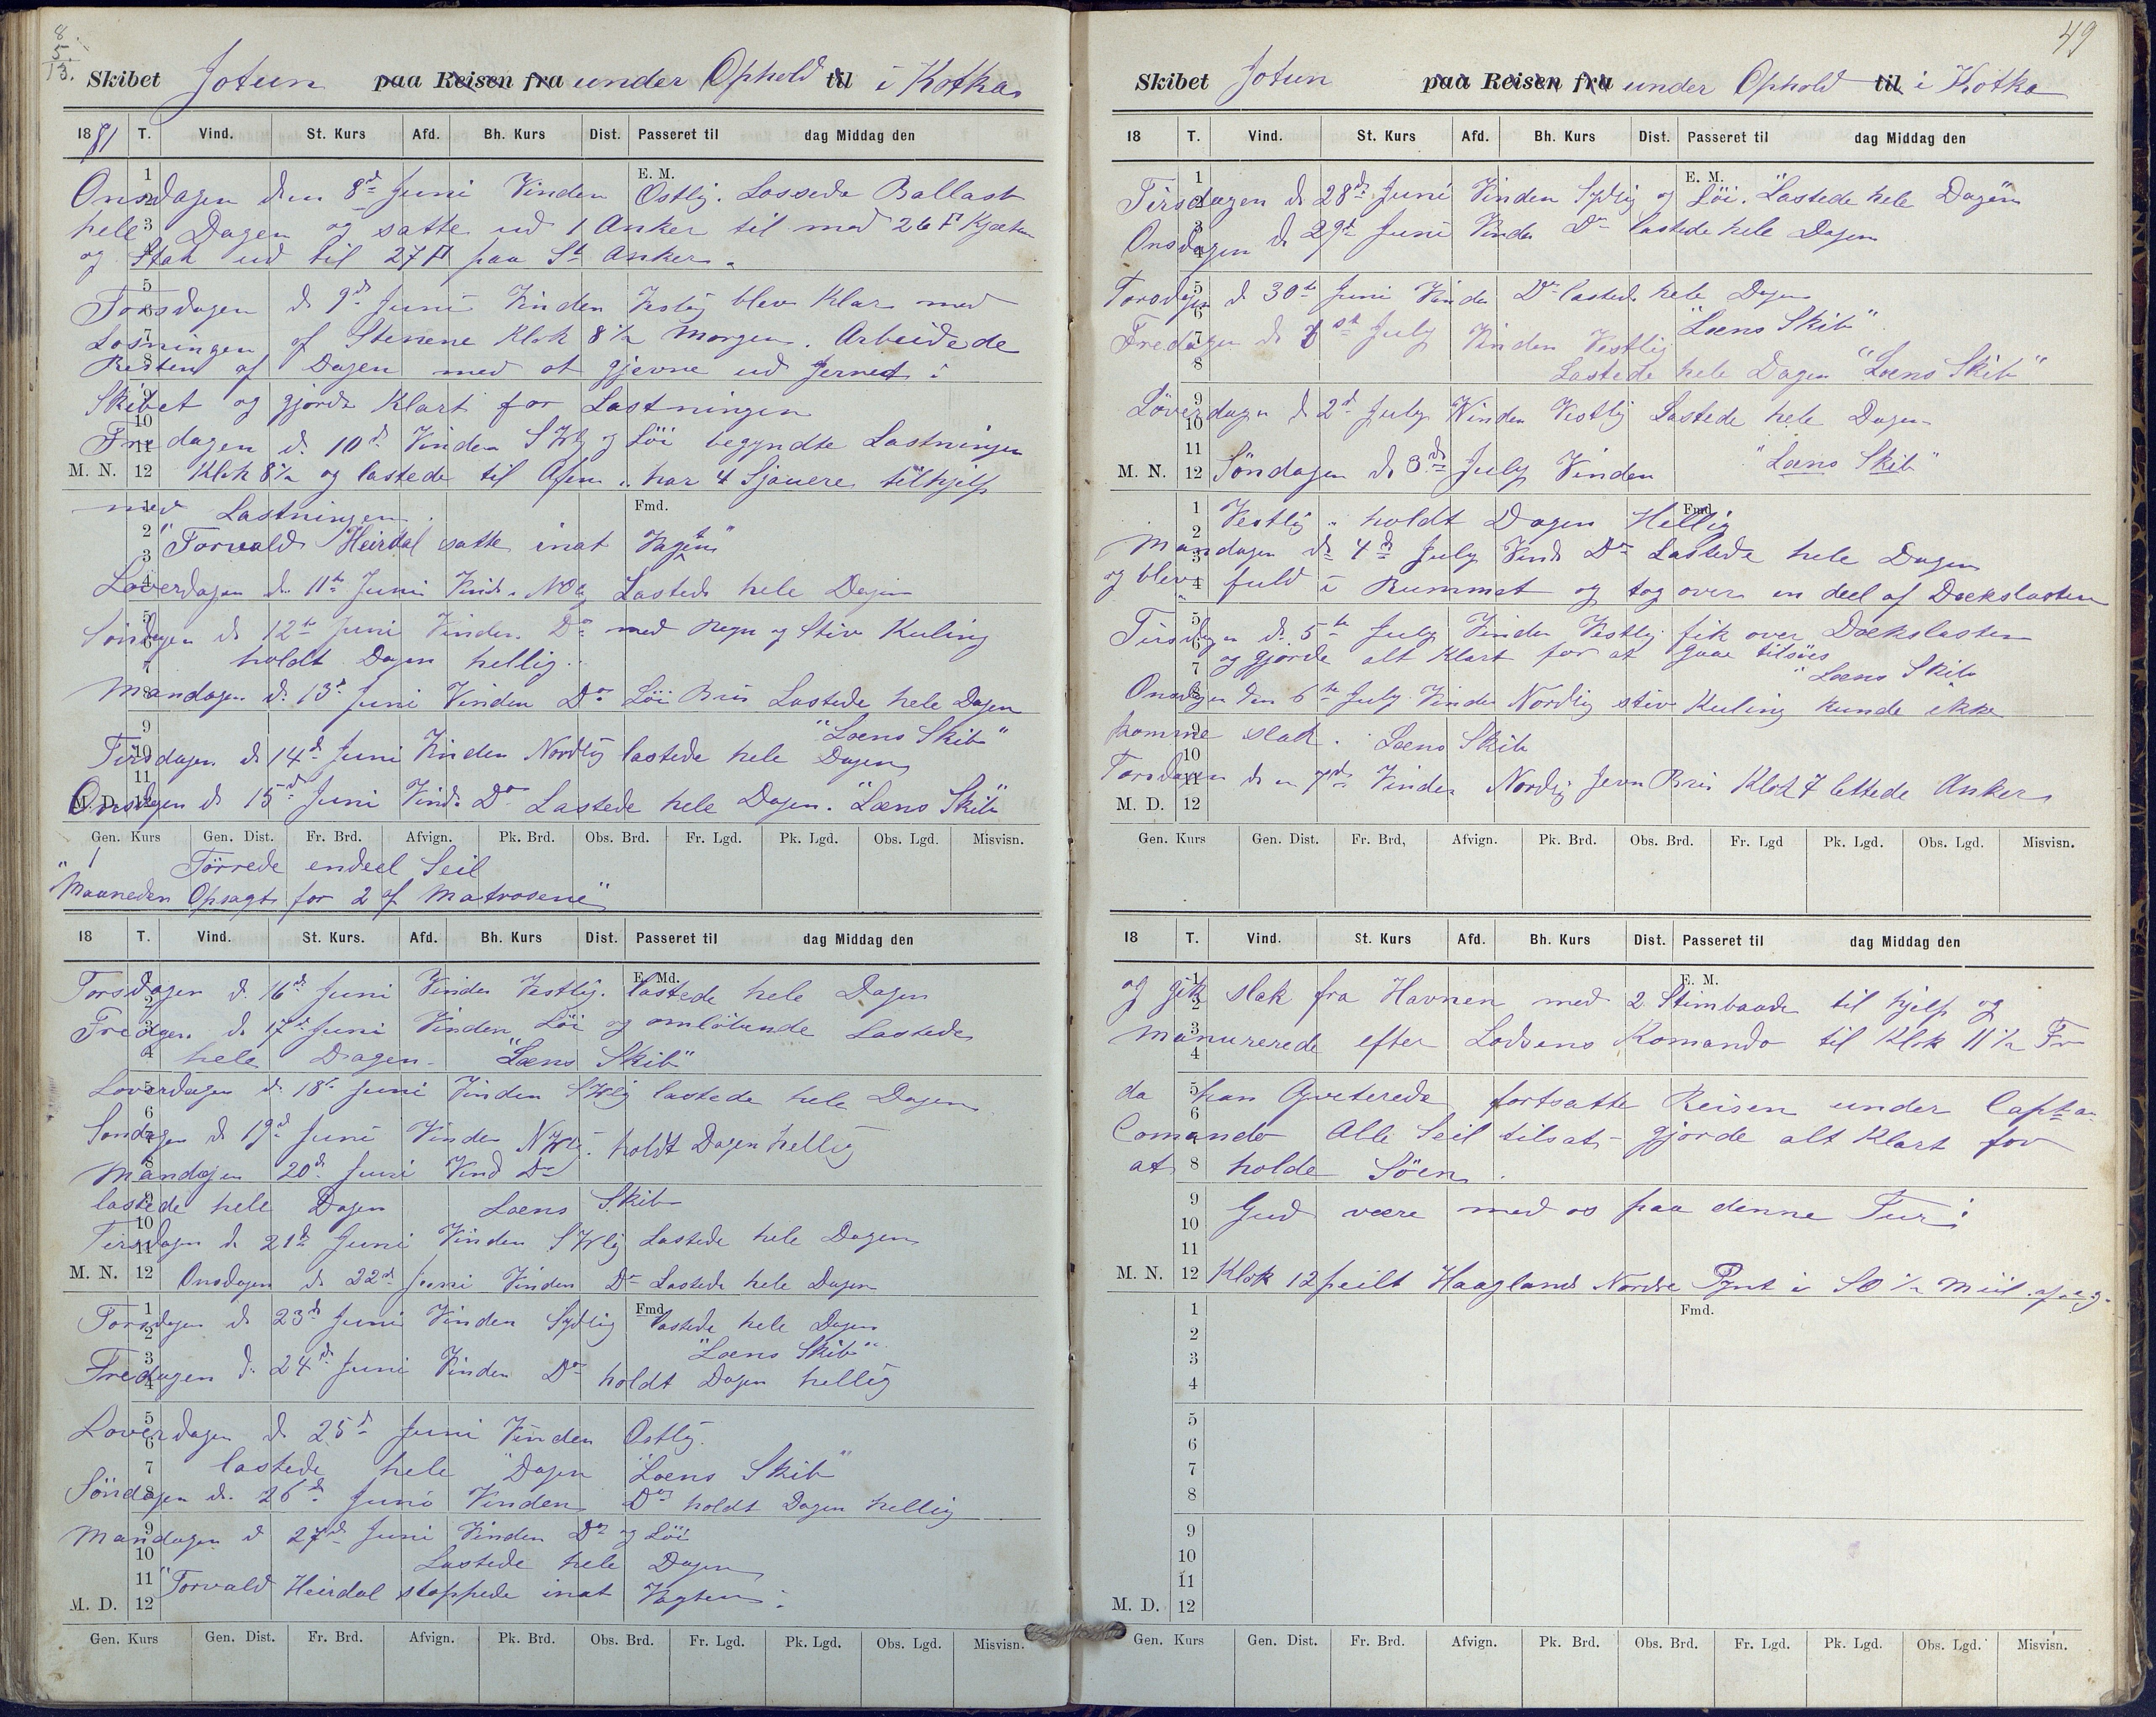 8
5
13.
Skibet Jotun paa Reisen fra under Ophold til i Kotka
1881 T. Vind. St. Kurs Afd. Bh. Kurs Dist. Passeret til dag Middag den
E. M.
Onsdagen den 8d Juni Vinden Ostlig. Lossede Ballast
hele Dagen og satte ud 1 Anker til med 26 F Kjæten
og Stak ud til 27 F paa St Anker.
Torsdagen d 9d Juni Vinden Vestlig blev Klar med
Losningen af Stenene Klok 8 1/2 Morgen. Arbeidede
Resten af Dagen med at gjevne ud Jernet i
Skibet og gjorde Klart for Lastningen
Fredagen d. 10d Vinden SWlig og Löi begyndte Lastningen
M. N. 12 Klok 8 1/2 og lastede til Aften. har 4 Sjauere tilhjelp
med Lastningen. Fmd.
"Torvald Heirdal satte inat Vagten"
Loverdagen d. 11te Juni Vind. NOlig Lastede hele Dagen
Söndagen d 12te Juni Vinden Do med Regn og Stiv Kuling
holdt Dagen hellig.
Mandagen d. 13d Juni Vinden Do Löi Bris Lastede hele Dagen
"Læns Skib"
Tirsdagen d 14d Juni Vinden Nordlig lastede hele Dagen
M. D. 12 Onsdagen d 15d Juni Vind. Do Lastede hele Dagen. "Læns Skib"
Gen. Kurs Gen. Dist. Fr. Brd. Afvign. Pk. Brd. Obs. Brd. Fr. Lgd. Pk. Lgd. Obs. Lgd. Misvisn.
Törrede endeel Seil
"Maaneden Opsagt for 2 af Matrosene"
18 T. Vind. St. Kurs. Afd. Bh. Kurs Dist. Passeret til dag Middag den
E. Md.
Torsdagen d. 16d Juni Vinden Vestlig. lastede hele Dagen
Fredagen d. 17d Juni Vinden Löi og omlöbende Lastede
hele Dagen. "Læns Skib"
Loverdagen d. 18d Juni Vinden SWlig lastede hele Dagen
Sondagen d 19d Juni Vinden NWlig. holdt Dagen hellig
Mandagen 20d Juni Vind Do
lastede hele Dagen Læns Skib
Tirsdagen d 21d Juni Vinden SWlig Lastede hele Dagen
M. N. 12 Onsdagen d 22d Juni Vinden Do Lastede hele Dagen
Fmd.
Torsdagen d 23d Juni Vinden Sydlig lastede hele Dagen
"Læns Skib"
Fredagen d. 24d Juni Vinden Do holdt Dagen hellig
Loverdagen d 25d Juni Vinden Ostlig.
lastede hele Dagen "Læns Skib"
Söndagen d. 26d Juni Vinden Do holdt Dagen hellig
Mandagen d 27d Juni Vinden Do og Löi
Lastede hele Dagen
M. D. 12 "Torvald Heirdal stoppede inat Vagten.
Gen. Kurs Gen. Dist. Fr. Brd. Afvign. Pk. Brd. Obs. Brd. Fr. Lgd. Pk. Lgd. Obs. Lgd. Misvisn.
49
Skibet Jotun paa Reisen fra under Ophold til i Kotka
18 T. Vind. St. Kurs Afd. Bh. Kurs Dist. Passeret til dag Middag den
E. M.
Tirsdagen d 28d Juni Vinden Sydlig og Löi. Lastede hele Dagen
Onsdagen d 29d Juni Vinden Do lastede hele Dagen
Torsdagen d 30te Juni Vinden Do lastede hele Dagen
"Læns Skib"
Fredagen d 1st July Vinden Vestlig
Lastede hele Dagen "Læns Skib"
Löverdagen d 2d July Vinden Vestlig Lastede hele Dagen
"Læns Skib"
M. N. 12 Söndagen d. 3d July Vinden
Fmd.
Vestlig. holdt Dagen Hellig
Mandagen d 4d July Vind Do Lastede hele Dagen
og blev fuld i Rummet og tog over en deel af Dækslasten
Tirsdagen d. 5te July Vinden Vestlig fik over Dækslasten
og gjorde alt Klart for at gaae tilsöes
"Læns Skib
Onsdagen den 6te July Vinden Nordlig stiv Kuling kunde ikke
komme slak. Læns Skib
Torsdagen den 7d Vinden Nordlig Jevn Bris Klok 7 lettede Anker
M. D. 12
Gen. Kurs Gen. Dist. Fr. Brd, Afvign. Pk. Brd. Obs. Brd. Fr. Lgd Pk. Lgd. Obs. Lgd. Misvisn.
18 T. Vind. St. Kurs Afd. Bh. Kurs Dist. Passeret til dag Middag den
E. M.
og gik slak fra Havnen med 2 Stimbaade til hjelp og
Manurerede efter Lodsens Komando til Klok 11 1/2 Fm
da han Qviterede fortsatte Reisen under Capt.
Comando Alle Seil tilsat gjorde alt Klart for
at holde Söen.
Gud være med os paa denne Tur
M. N. 12 Klok 12 peilt Haagland Nordre Pynt i SO 1/2 Miil
Fmd.
1
2
3
4
5
6
7
8
9
10
11
M. D. 12
Gen. Kurs Gen. Dist. Fr. Brd. Afvign. Pk. Brd. Obs. Brd. Fr. Lgd. Pk. Lgd. Obs. Lgd. Misvisn.